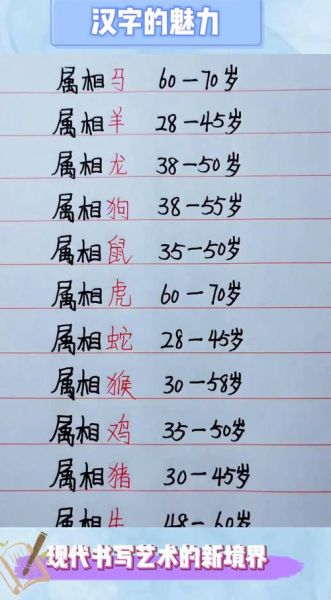 汉字的魅力
属相马 60－70岁
属相羊 28－45岁
属相龙 38－50岁
属相狗 38－55岁
属相鼠 35－50岁
属相虎 60－70岁
属相蛇 28－45岁
属相猴 30－58岁
属相鸡 35－50岁
属相猪 30－45岁
属相牛 48－60岁
现代书写艺术的新境界